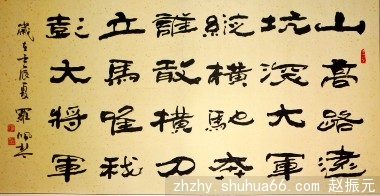 山高路遠
坑深大軍
縱橫馳奔
誰敢橫刀
立馬唯我
彭大將軍
歲在壬辰夏 羅
zhzhy.shuhua66.com 赵振元